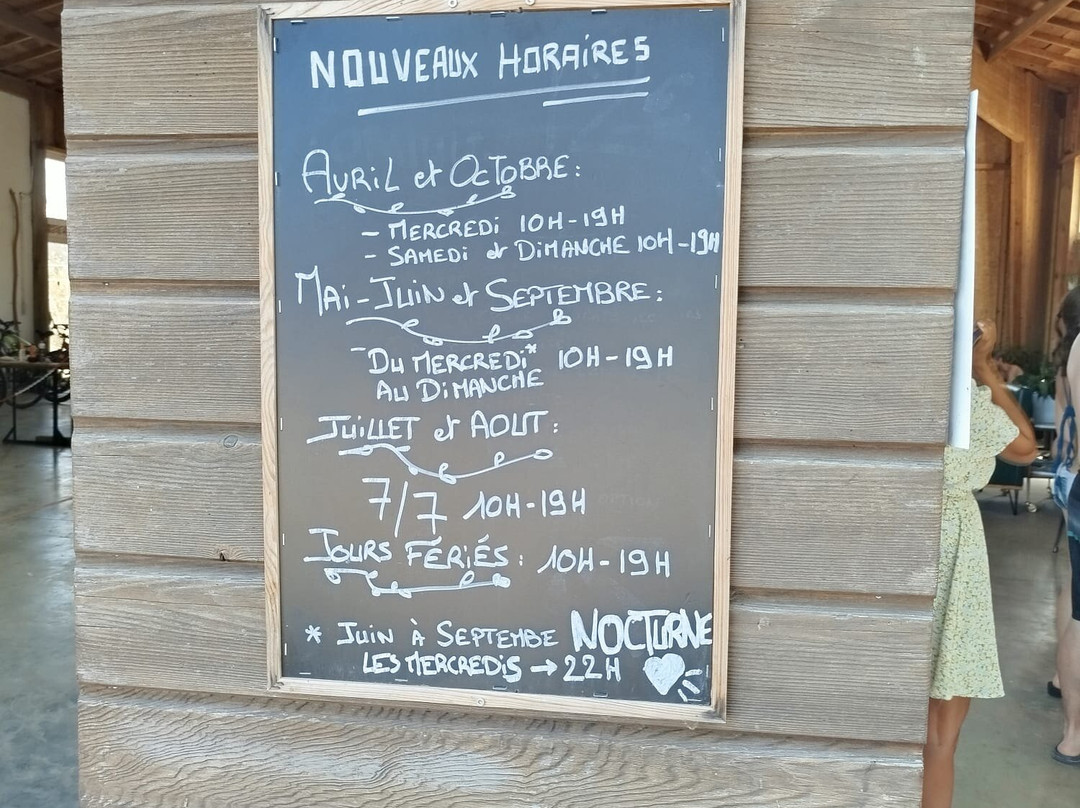 NOUVEAUX HORAIRES
AVRIL et OCTOBRE:
- MERCREDI 10H-19H
- SAMEDI et DIMANCHE 10H-19H
MAI-JUIN et SEPTEMBRE:
- DU MERCREDI* 10H-19H
AU DIMANCHE
JUILLET et AOUT:
7/7 10H-19H
JOURS FÉRIÉS: 10H-19H
* JUIN À SEPTEMBE NOCTURNE
LES MERCREDIS → 22H